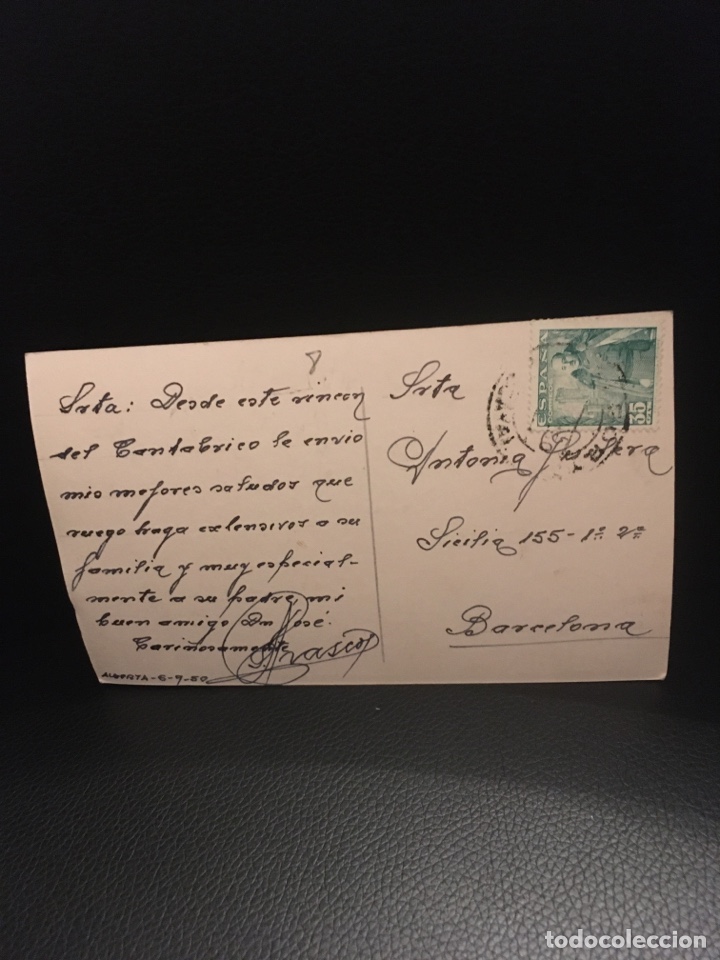 8
Srta: Desde este rincon
del Cantabrico le envio
mis mejores saludos que
ruego haga extensivos a su
familia y muy especial-
mente a su padre mi
buen amigo Dn José.
Cariñosamente
Frasco
6-9-50
Srta
Antonia
Sicilia 155-1º 2ª
Barcelona
ESPAÑA
35
todocoleccion
todocoleccion.net